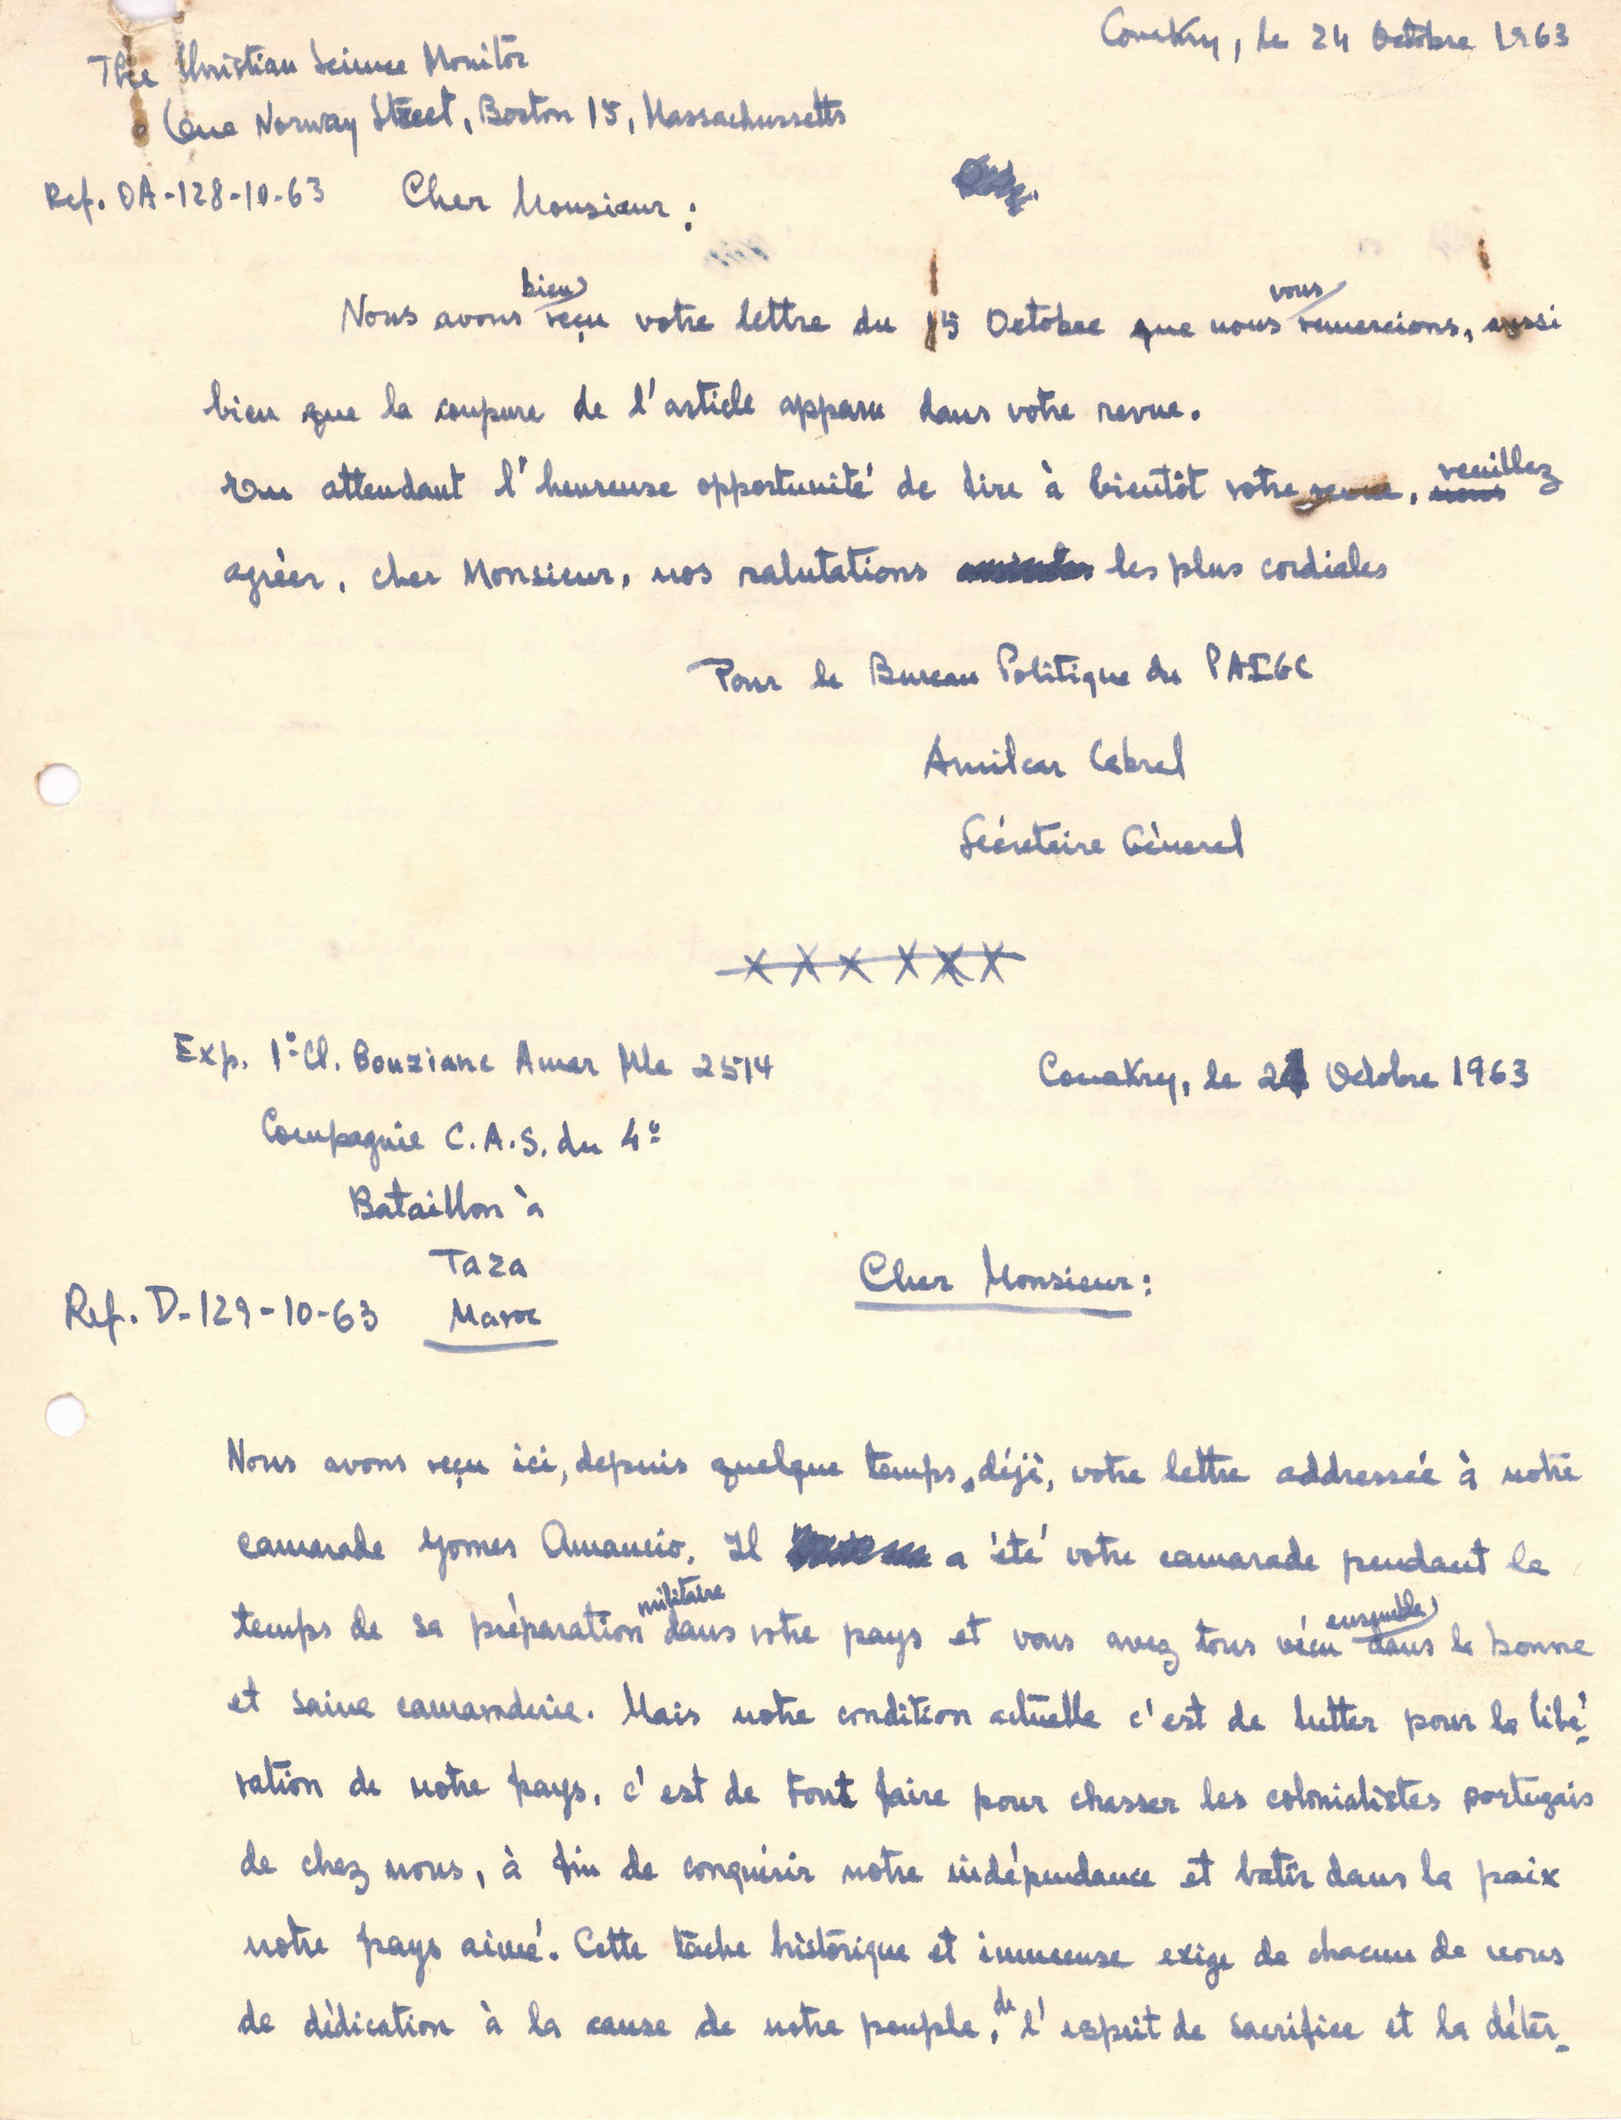 Conakry, le 24 Octobre 1963
The Christian Science Monitor
One Norway Street, Boston 15, Massachussetts
Ref. OA-128-10-63 Cher Monsieur :
Nous avons bien reçu votre lettre du 15 Octobre que nous vous remercions, aussi
bien que la coupure de l'article apparu dans votre revue.
En attendant l'heureuse opportunité de lire à bientôt votre revue, veuillez
agréer, cher Monsieur, nos salutations les plus cordiales
Pour le Bureau Politique du PAIGC
Amilcar Cabral
Sécretaire Géneral
x x x x x x
Exp. 1º Cl. Bouziane Amer Mle 2514
Conakry, le 24 Octobre 1963
Compagnie C.A.S. du 4º
Bataillon à
Taza
Maroc
Cher Monsieur :
Ref. D-129-10-63
Nous avons reçu ici, depuis quelque temps, déjà, votre lettre addressée à notre
camarade Gomes Amancio. Il a été votre camarade pendant le
temps de sa préparation militaire dans votre pays et vous avez tous vécu ensemble dans la bonne
et saine camaraderie. Mais notre condition actuelle c'est de lutter pour la libé-
ration de notre pays, c'est de tout faire pour chasser les colonialistes portugais
de chez nous, à fin de conquérir notre indépendance et batir dans la paix
notre pays aimé. Cette tâche historique et immense exige de chacun de nous
de dédication à la cause de notre peuple, de l'esprit de sacrifice et la déter-